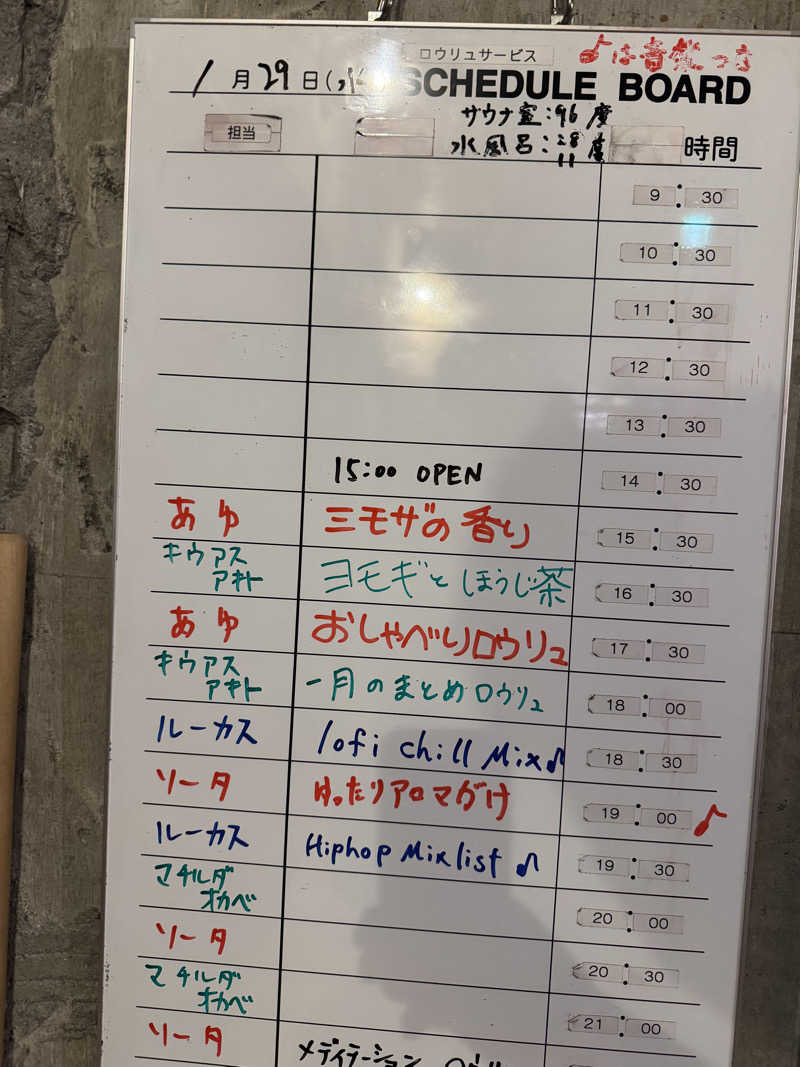 ロウリュサービス ♪は音楽つき
1月29日(水) SCHEDULE BOARD
サウナ室:96度
水風呂:28度
11
担当 時間
9:30
10:30
11:30
12:30
13:30
15:00 OPEN 14:30
あゆ ミモザの香り 15:30
キウアス
アキト ヨモギとほうじ茶 16:30
あゆ おしゃべりロウリュ 17:30
キウアス
アキト 一月のまとめロウリュ 18:00
ルーカス lofi chill Mix♪ 18:30
ソータ ゆったりアロマがけ 19:00 ♪
ルーカス Hiphop Mix list ♪ 19:30
マチルダ
オカベ 20:00
ソータ 20:30
マチルダ
オカベ 21:00
ソータ メディテーション